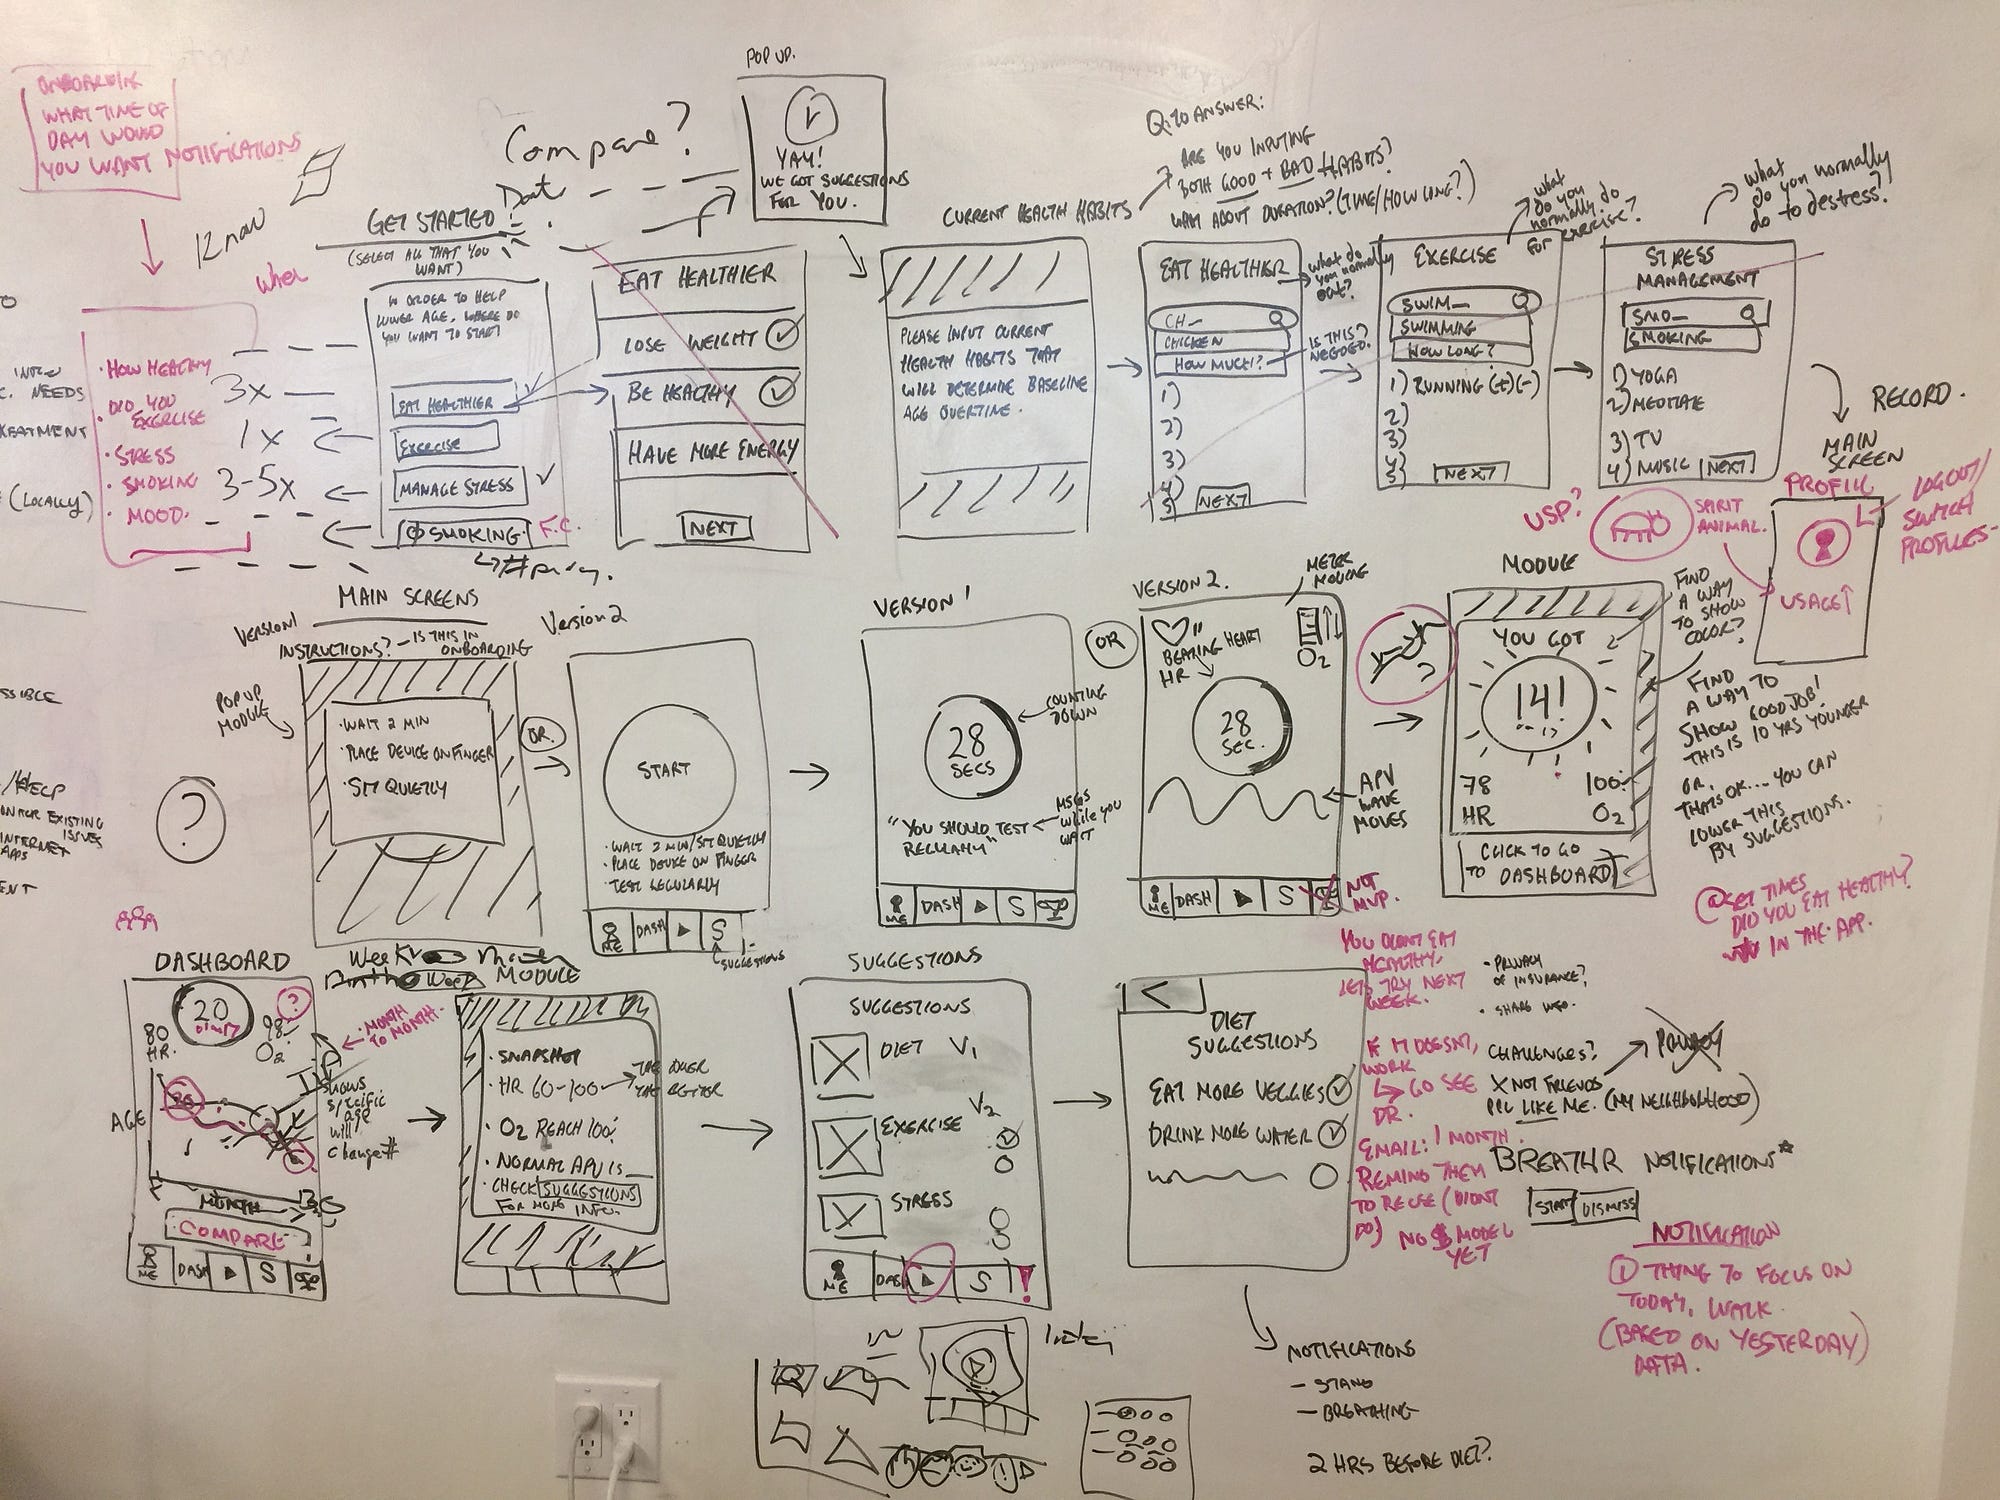 POP UP.
YAY!
WE GOT SUGGESTIONS
FOR YOU.
WHAT TIME OF
DAY WOULD
YOU WANT NOTIFICATIONS
Compare?
Q: TO ANSWER:
ARE YOU INPUTING
BOTH GOOD + BAD HABITS?
WHAT ABOUT DURATION? (TIME/HOW LONG?)
CURRENT HEALTH HABITS
GET STARTED
(SELECT ALL THAT YOU
WANT)
IN ORDER TO HELP
LOWER AGE, WHERE DO
YOU WANT TO START?
EAT HEALTHIER
EXERCISE
MANAGE STRESS
SMOKING
F.C.
EAT HEALTHIER
LOSE WEIGHT
BE HEALTHY
HAVE MORE ENERGY
NEXT
PLEASE INPUT CURRENT
HEALTH HABITS THAT
WILL DETERMINE BASELINE
AGE OVERTIME.
EAT HEALTHIER
what do
you normally
eat?
CH_
CHICKEN
HOW MUCH?
IS THIS
NEEDED?
1)
2)
3)
4)
5)
NEXT
EXERCISE
what
do you
normally do
for exercise?
SWIM_
SWIMMING
HOW LONG?
1) RUNNING (+)(-)
2)
3)
4)
5)
NEXT
STRESS
MANAGEMENT
what
do you normally
do to destress?
SMO_
SMOKING
1) YOGA
2) MEDITATE
3) TV
4) MUSIC
NEXT
RECORD.
MAIN
SCREEN
PROFILE
LOGOUT/
SWITCH
PROFILES
USAGE↑
USP?
SPIRIT
ANIMAL.
· HOW HEALTHY
· DID YOU
EXERCISE
· STRESS
· SMOKING
· MOOD.
3x
1x
3-5x
NEEDS
(LOCALLY)
MAIN SCREENS
VERSION 1
INSTRUCTIONS? - IS THIS IN
ONBOARDING
POP UP
MODULE
· WAIT 2 MIN
· PLACE DEVICE ON FINGER
· SIT QUIETLY
OR.
Version 2
START
· WAIT 2 MIN/SIT QUIETLY
· PLACE DEVICE ON FINGER
· TEST REGULARLY
ME
DASH
S
SUGGESTIONS
VERSION 1
28
SECS
COUNTING
DOWN
"YOU SHOULD TEST
REGULARLY"
MSGS
while you
WAIT
ME
DASH
S
OR
VERSION 2.
METER
MOVING
BEATING HEART
HR
O2
28
SEC.
APV
WAVE
MOVES
ME
DASH
S
NOT
MVP.
MODULE
YOU GOT
!4!
78
HR
100
O2
CLICK TO GO
TO DASHBOARD
FIND
A WAY
TO SHOW
COLOR?
FIND
A WAY TO
SHOW GOOD JOB!
THIS IS 10 YRS YOUNGER
OR,
THATS OK.... YOU CAN
LOWER THIS
BY SUGGESTIONS.
SET TIMES
DID YOU EAT HEALTHY?
IN THE APP.
/HELP
EXISTING
ISSUES
INTERNET
APPS
?
DASHBOARD
20
80
HR.
?
98
O2
· MONTH
TO MONTH
AGE
SHOWS
SPECIFIC
age
will
Change
MONTH
COMPARE
ME
DASH
S
MODULE
· SNAPSHOT
· HR 60-100
THE LOWER
THE BETTER
· O2 REACH 100
· NORMAL APV IS
· CHECK SUGGESTIONS
FOR MORE INFO.
SUGGESTIONS
SUGGESTIONS
DIET V1
V2
EXERCISE
STRESS
ME
DASH
S
!
<
DIET
SUGGESTIONS
EAT MORE VEGGIES
DRINK MORE WATER
YOU DIDNT EAT
HEALTHY,
LETS TRY NEXT
WEEK.
IF IT DOESN'T,
WORK
GO SEE
DR.
EMAIL: 1 MONTH.
REMIND THEM
TO REUSE (DIDNT
DO)
NO $ MODEL
YET
· PRIVACY
OF INSURANCE?
· SHARE INFO.
CHALLENGES?
X NOT FRIENDS
PPL LIKE ME. (MY NEIGHBORHOOD)
PRIVACY
BREATHR NOTIFICATIONS*
START
DISMISS
NOTIFICATION
① THING TO FOCUS ON
TODAY, WALK.
(BASED ON YESTERDAY)
DATA.
NOTIFICATIONS
- STAND
- BREATHING
2 HRS BEFORE DIET?